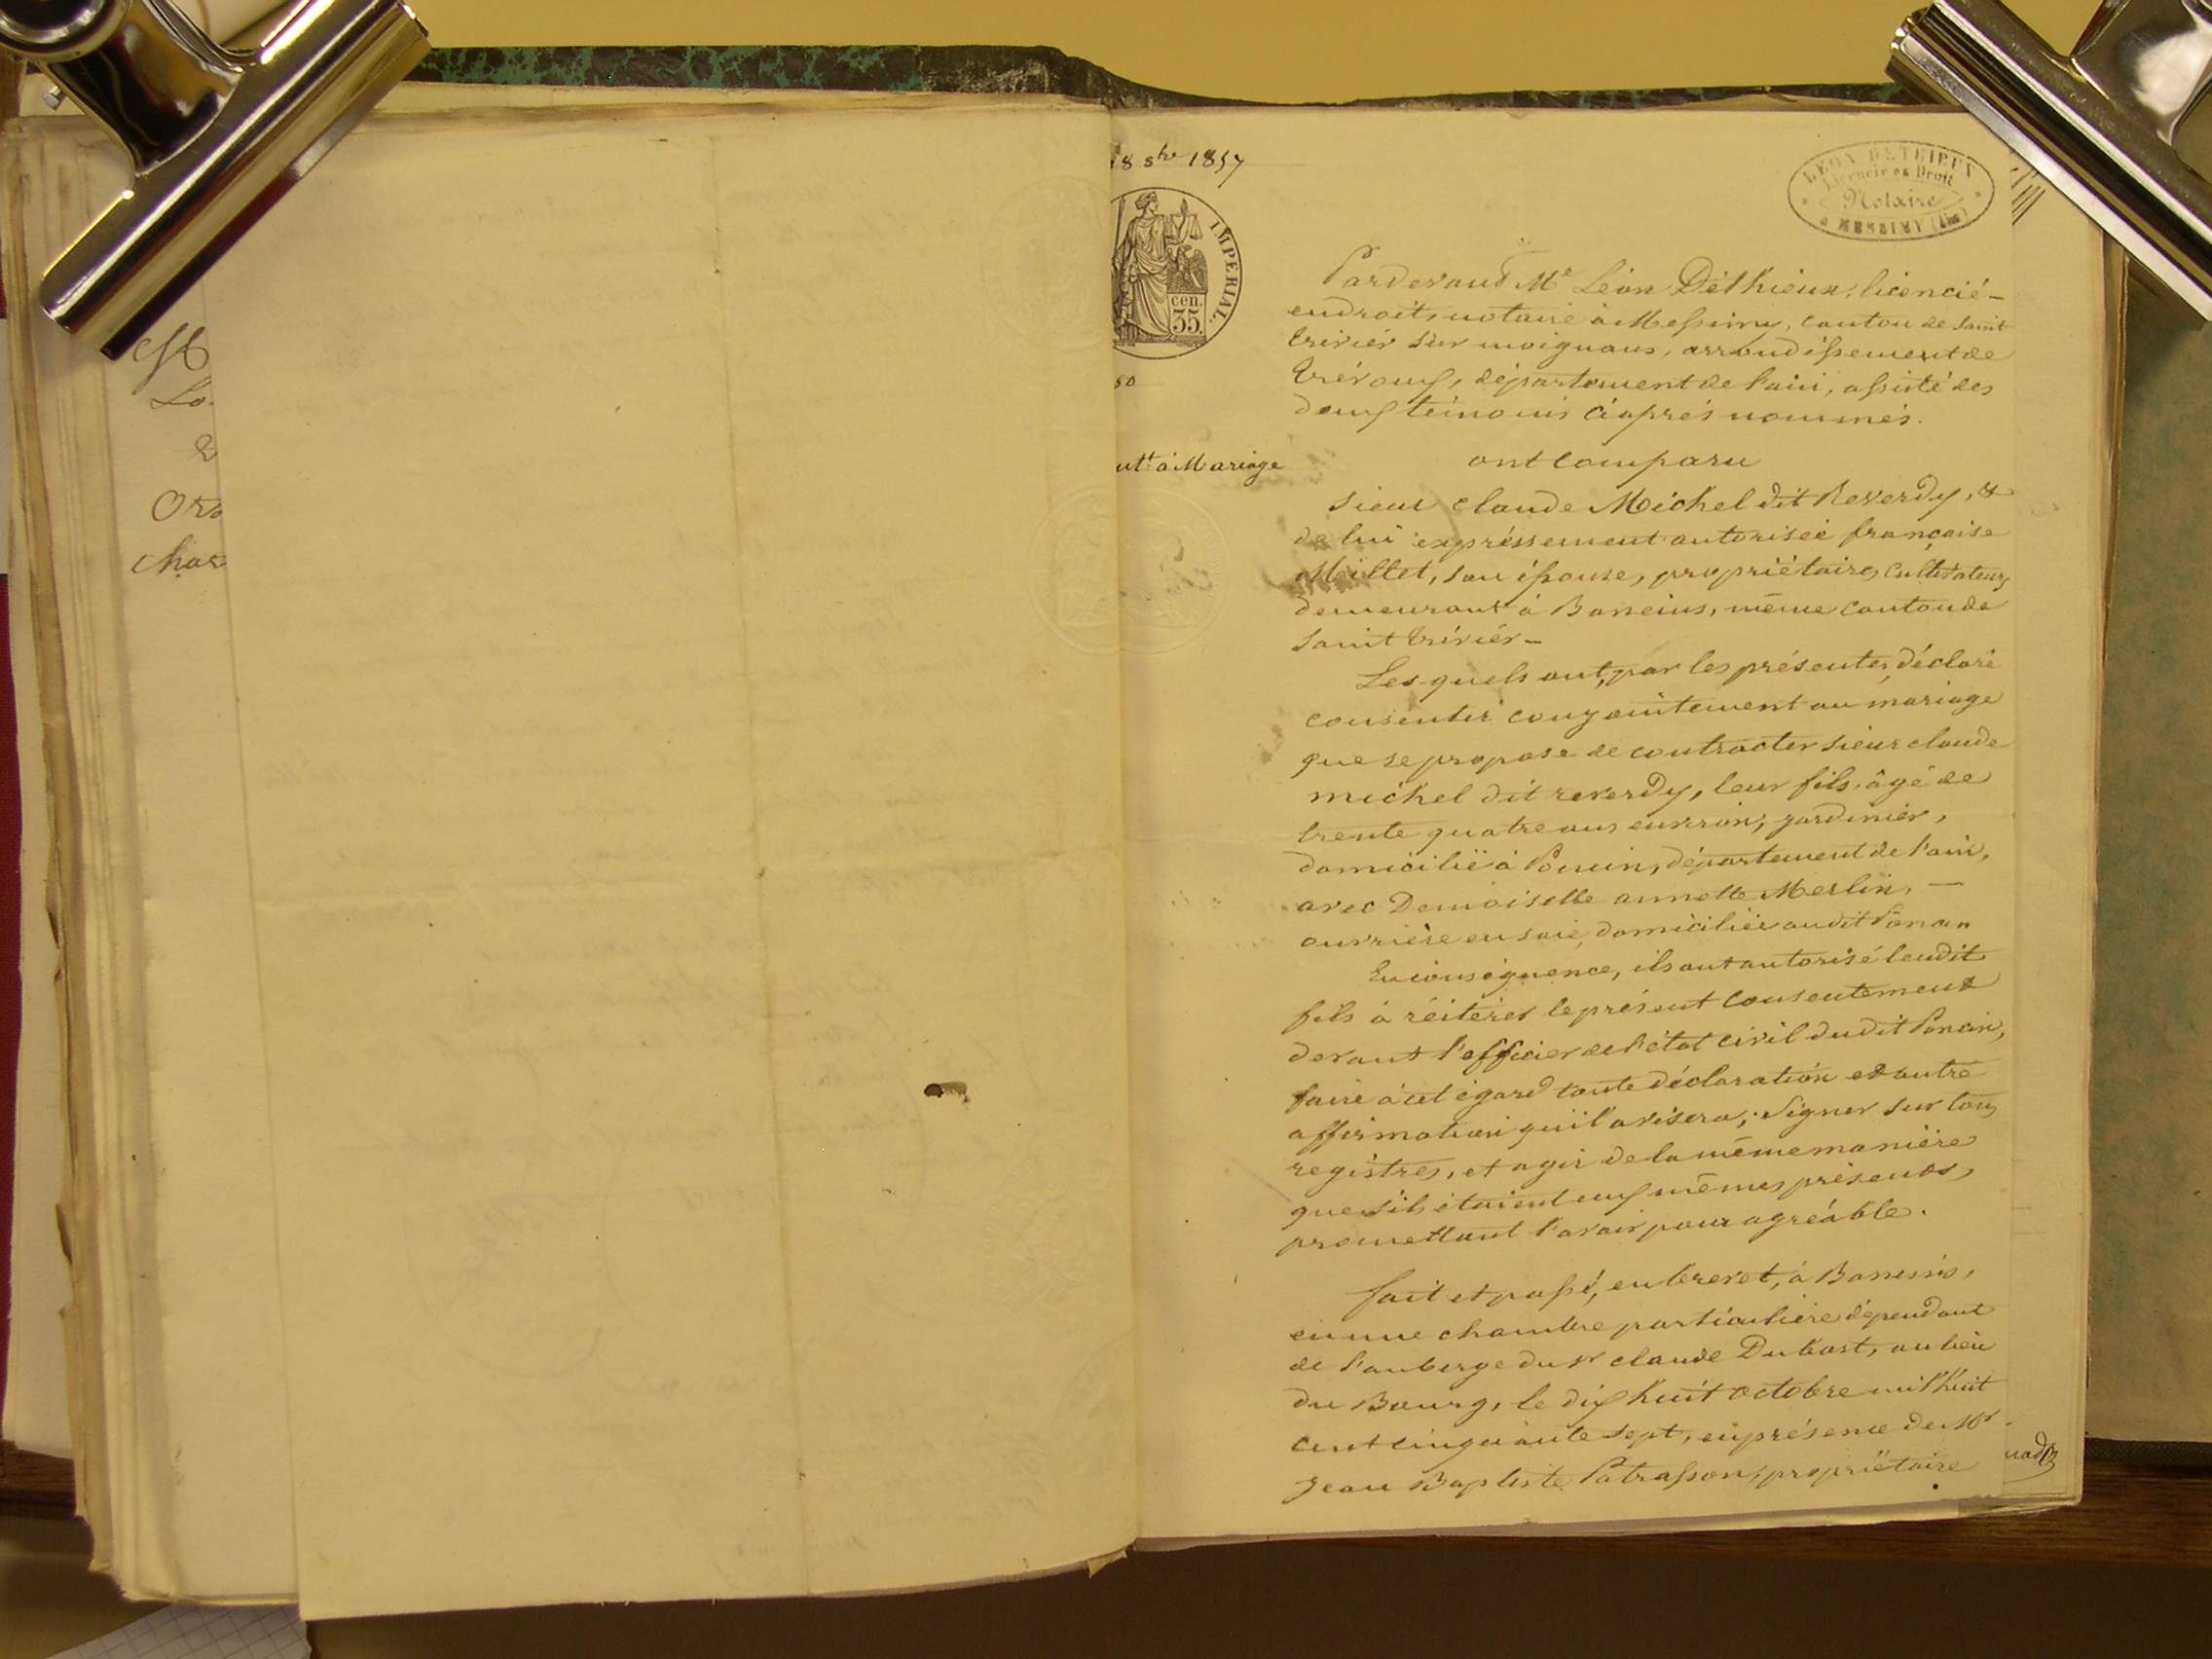 M
Lo
Oro
char
18 8bre 1857
IMPERIAL.
cen.
35.
50
ut.t à Mariage
LÉON DETHIEUX
Licencié en Droit
Notaire
à MESSIMY (Ain)
Pardevant Me Léon Déthieux, licencié-
en droit, notaire à Messimy, canton de Saint
trivier sur moignans, arrondissement de
trévoux, département de l'ain, assisté des
deux témoins ciaprès nommés.
ont comparu
Sieur claude Michel dit Reverdy, &
de lui expréssement autorisée françoise
Millet, son épouse, propriétaires cultivateurs
demeurant à Baneins, même canton de
Saint trivier-
Lesquels ont, par les présentes, déclaré
consentir conjointement au mariage
que se propose de contracter sieur claude
michel dit reverdy, leur fils, âgé de
trente quatre ans environ, jardinier,
domicilié à Poncin, département de l'ain,
avec Demoiselle annette Merlin, —
ouvrière en soie, domiciliée audit Poncin
En conséquence, ils ont autorisé leudit
fils à réitérer le présent consentement
devant l'officier de l'état civil dudit Poncin,
faire à cet égard toute déclaration et autre
affirmation qu'il avisera; signer sur tous
registres, et agir de la même manière
que s'ils étaient eux mêmes présents,
promettant l'avoir pour agréable.
fait et passé, en brevet, à Baneins,
en une chambre particulière dépendant
de l'auberge du sr claude Dubost, au lieu
du Bourg, le dix huit octobre mil huit
cent cinquante sept, en présence de Mr
Jean Baptiste Patrasson, propriétaire